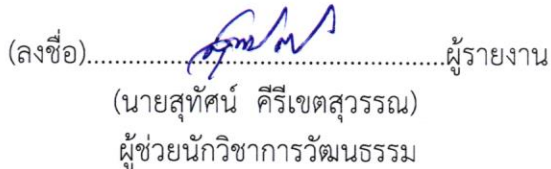 (ลงชื่อ)................................................ผู้รายงาน
(นายสุทัศน์ คีรีเขตสุวรรณ)
ผู้ช่วยนักวิชาการวัฒนธรรม